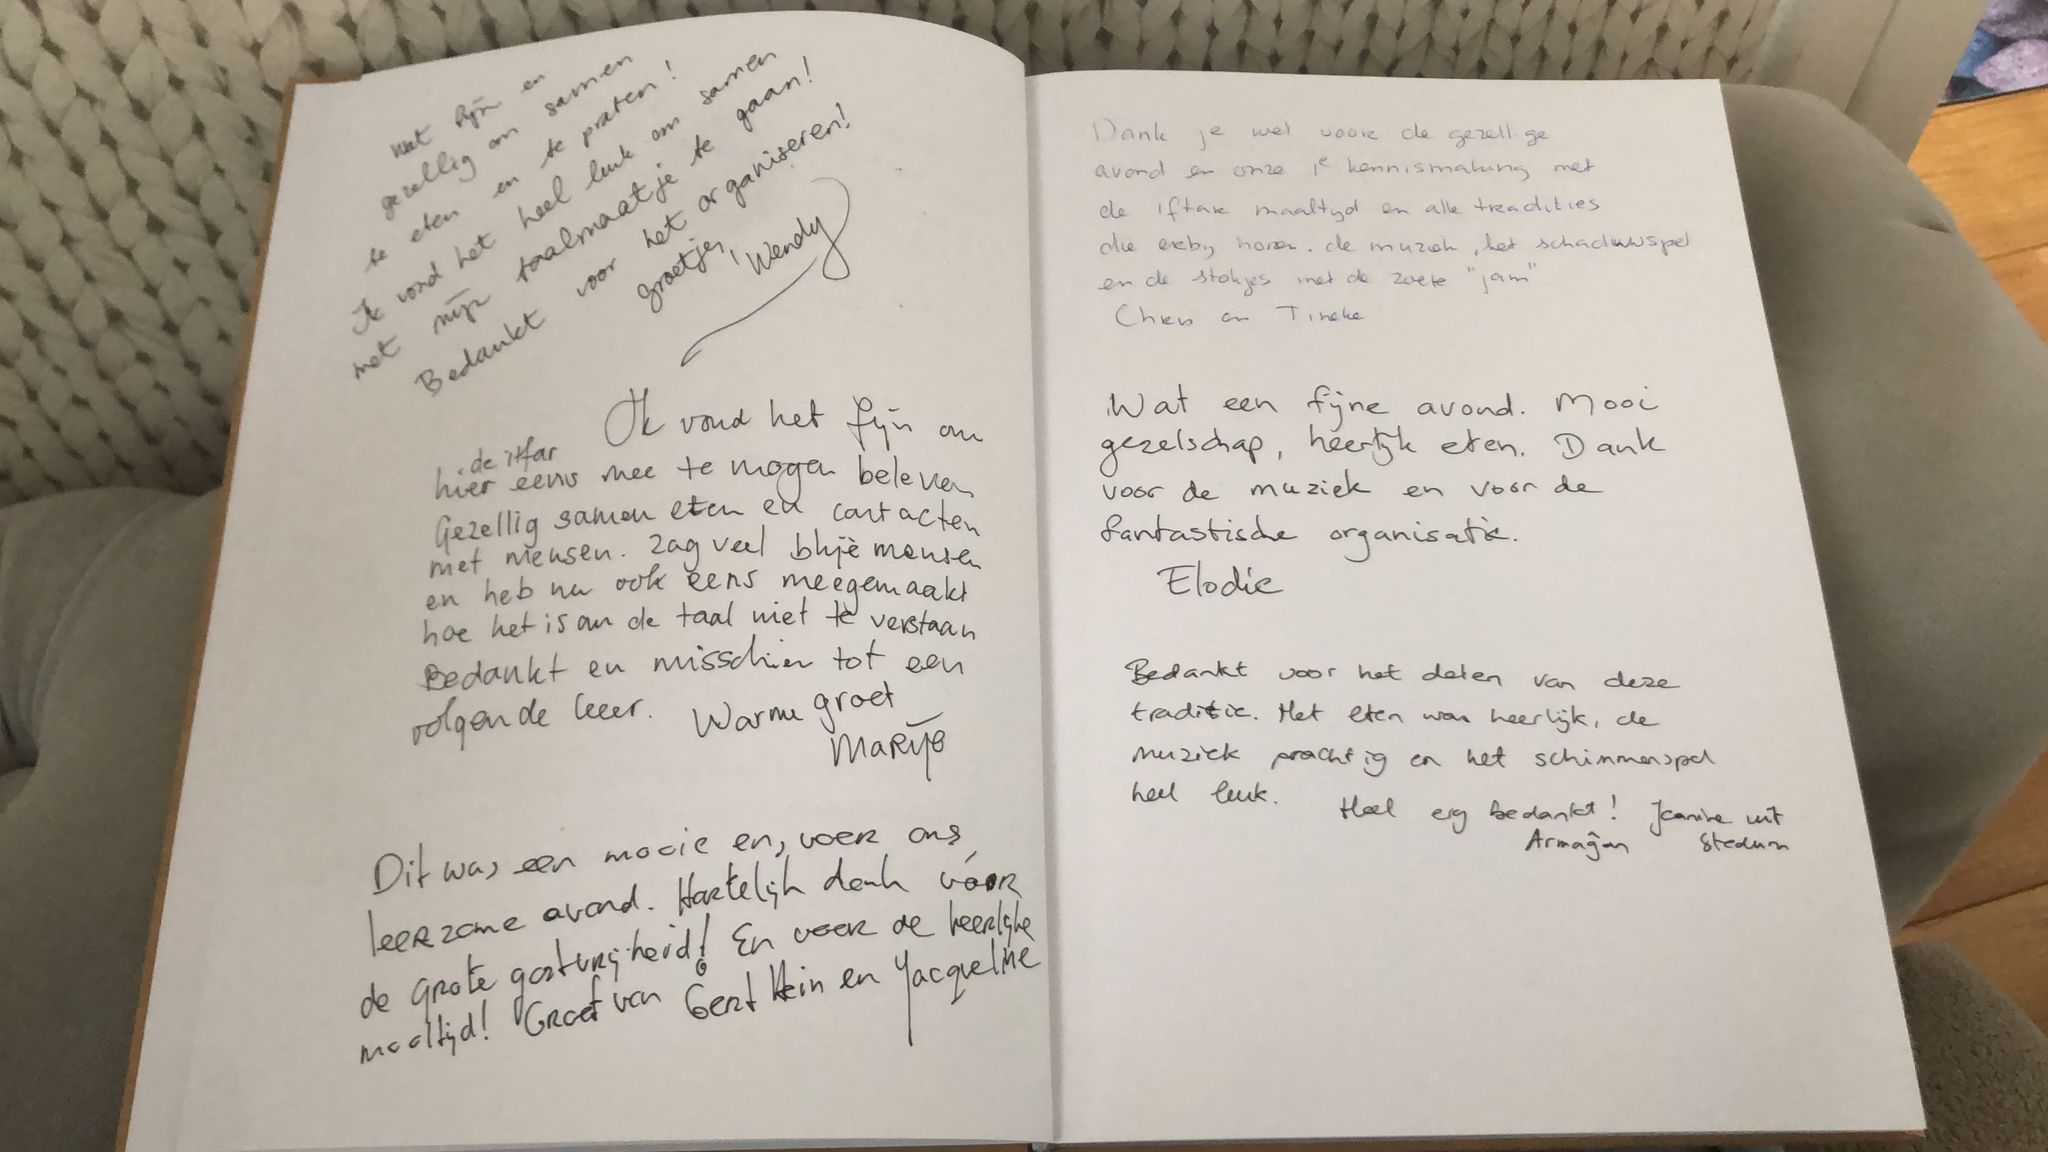 Wat fijn en
gezellig om samen
te eten en te praten!
Ik vond het heel leuk om samen
met mijn taalmaatje te gaan!
Bedankt voor het organiseren!
groetjes,
Wendy
Ik vond het fijn om
de itfar
hier eens mee te mogen beleven
Gezellig samen eten en contacten
met mensen. Zag veel blije mensen
en heb nu ook eens meegemaakt
hoe het is om de taal niet te verstaan
Bedankt en misschien tot een
volgende keer. Warme groet
Marijo
Dit was een mooie en, voor ons,
leerzame avond. Hartelijk dank vóór
de grote gastvrijheid! En voor de heerlijke
maaltijd! Groet van Gert Hein en Yacqueline
Dank je wel voor de gezellige
avond en onze 1e kennismaking met
de iftar maaltijd en alle tradities
die erbij horen. de muziek, het schaduwspel
en de stokjes met de zoete "jam"
Chris en Tineke
Wat een fijne avond. Mooi
gezelschap, heerlijk eten. Dank
voor de muziek en voor de
fantastische organisatie.
Elodie
Bedankt voor het delen van deze
traditie. Het eten was heerlijk, de
muziek prachtig en het schimmenspel
heel leuk.
Heel erg bedankt! Jeanine uit
Armağan Stedum